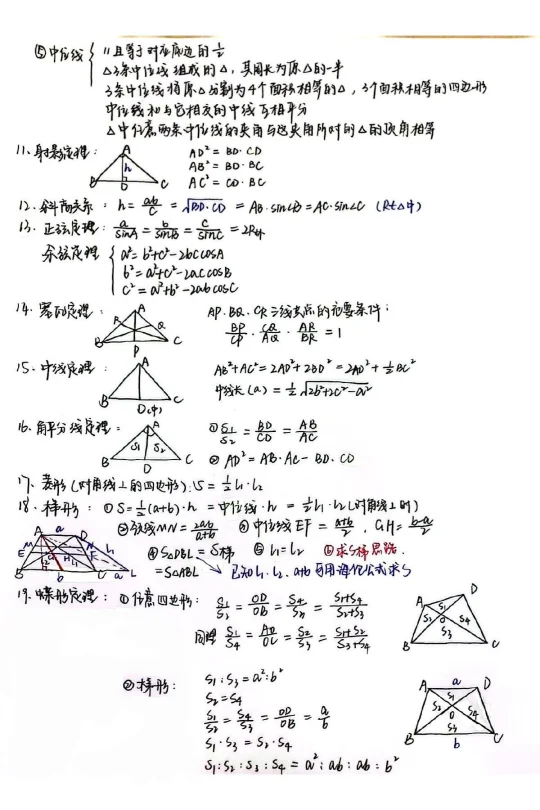 ⑤中位线 { // 且等于对应底边的 1/2
△3条中位线组成的△, 其周长为原△的一半
3条中位线将原△分割为4个面积相等的△, 3个面积相等的四边形
中位线和与它相交的中线互相平分
△中任意两条中位线的夹角与这夹角所对的△的顶角相等
11. 射影定理: AD² = BD·CD
AB² = BD·BC
AC² = CD·BC
A h B D C
12. 斜高关系: h = ab/c = √BD·CD = AB·sin∠B = AC·sin∠C (Rt△中)
13. 正弦定理: a/sinA = b/sinB = c/sinC = 2R外
余弦定理 { a² = b²+c²-2bccosA
b² = a²+c²-2accosB
c² = a²+b²-2abcosC
14. 塞瓦定理: AP、BQ、CR三线共点的充要条件:
BP/CP · CQ/AQ · AR/BR = 1
A R Q B P C
15. 中线定理: AB²+AC² = 2AD²+2BD² = 2AD²+½BC²
中线长(a) = ½√2b²+2c²-a²
A B D(中) C
16. 角平分线定理: ① S1/S2 = BD/CD = AB/AC
② AD² = AB·AC - BD·CD
A S1 S2 B D C
17. 菱形(对角线⊥的四边形): S = ½l1·l2
18. 梯形: ① S = ½(a+b)·h = 中位线·h = ½l1·l2(对角线⊥时)
② MN = 2ab/a+b ③ 中位线EF = a+b/2, GH = b-a/2
④ S△DBL = S梯 ⑤ l1 = l2 ⑥ 求S梯思路.
= S△ABL ↘ 已知l1、l2、a+b可用海伦公式求S
19. 蝶形定理: ① 任意四边形: S1/S2 = OD/OB = S4/S3 = S1+S4/S2+S3
同理 S1/S4 = AO/OC = S2/S3 = S1+S2/S3+S4
A D S1 S2 O S4 S3 B C
② 梯形: S1:S3 = a²:b²
S2 = S4
S1/S2 = S4/S3 = OD/OB = a/b
S1·S3 = S2·S4
S1:S2:S3:S4 = a²:ab:ab:b²
A a D S1 S2 S4 O S3 B b C